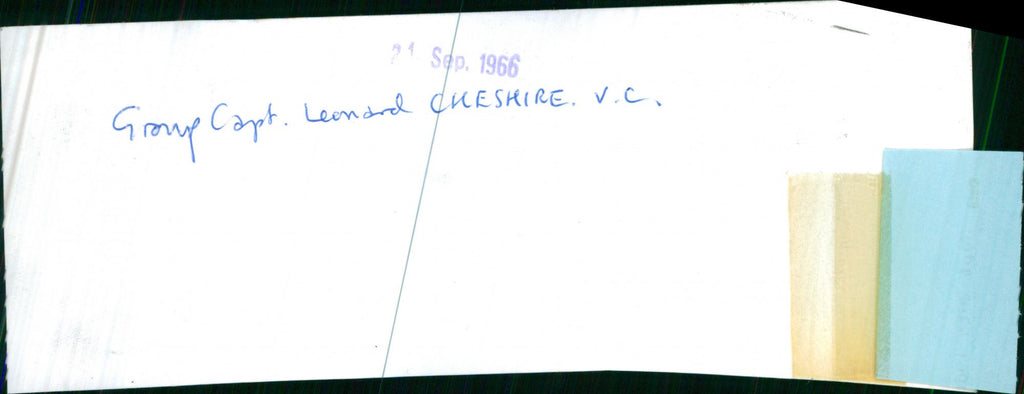 21 Sep. 1966
Group Capt. Leonard CHESHIRE. V.C.